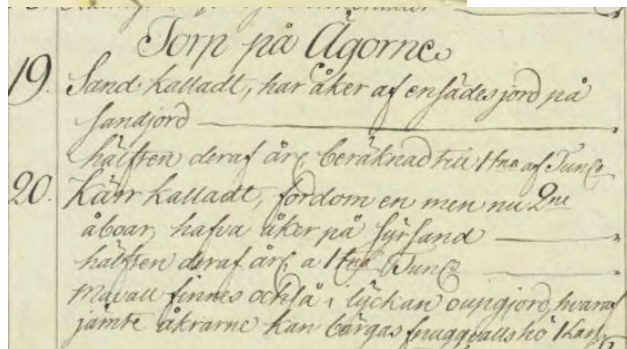 Torp på Ägorne
19. Sand kalladt, har åker af ensädesjord på
sandjord
hälften deraf årl. beräknad till 1 tna af Tunl
20. Kärr kalladt, fordom en men nu 2ne
åboar, hafva åker på syrsand
hälften deraf årl. a 1 tna Tunl
Måvall finnes också i lyckan oupgjord, hvaraf
jämte åkrarne kan bärgas snuggvallshö 1 Lass